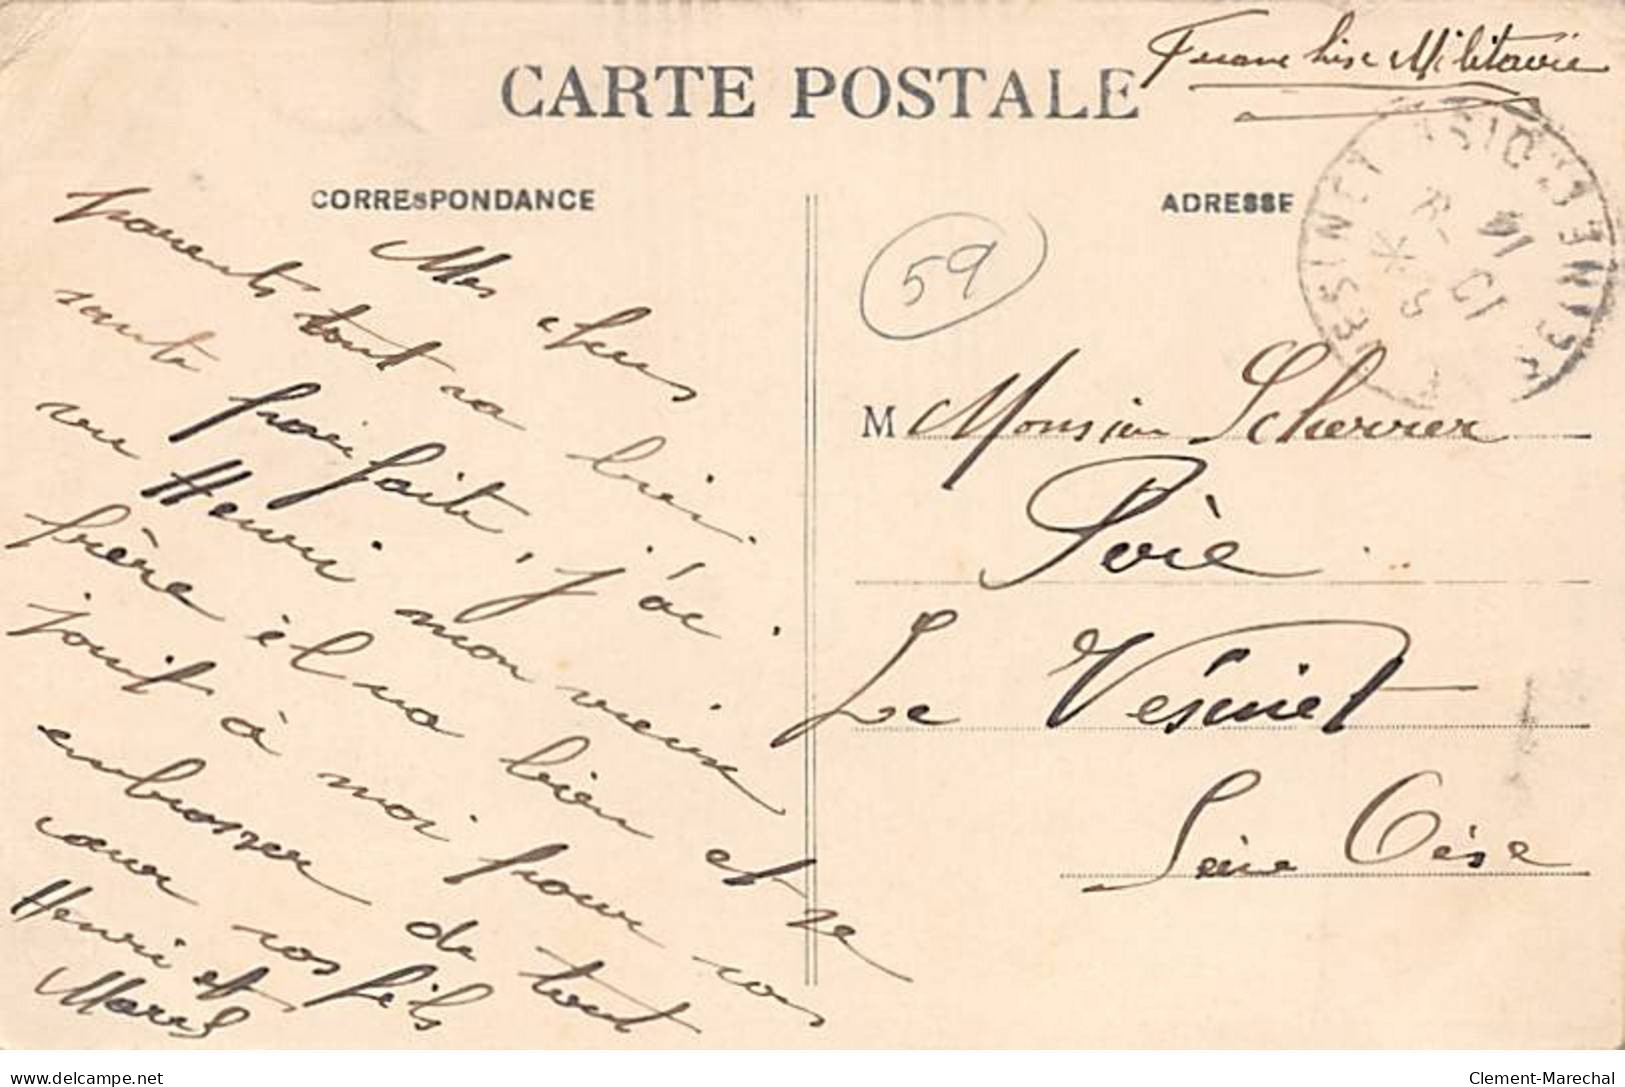 CARTE POSTALE
Franchise Militaire
CORRESPONDANCE
ADRESSE
Mes chers
parents, tout va bien
santé parfaite, j'ai
vu Henri mon vieux
frère il va bien et se
joint à moi pour vous
embrasser de tout
cœur vos fils
Henri et
Marcel
59
M Monsieur Scherrer
Père
Le Vésinet
Seine Oise
delcampe.net
Clement-Marechal